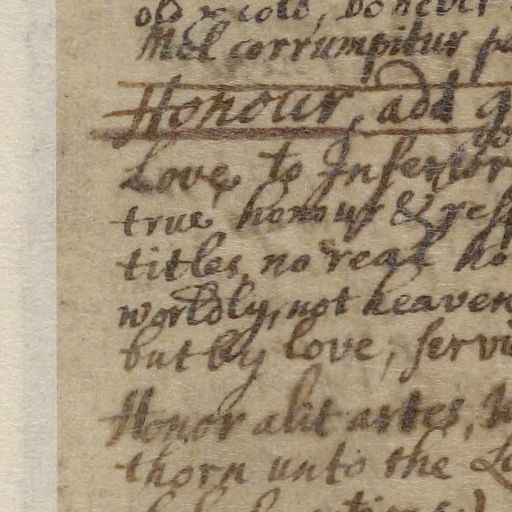 old & cold, do never
Mel corrumpitur
Honour, add
Love, to Inferior
true honour & resp
titles no real ho
worldly, not heaven
but by love, servi
Honor alit artes,
thorn unto the